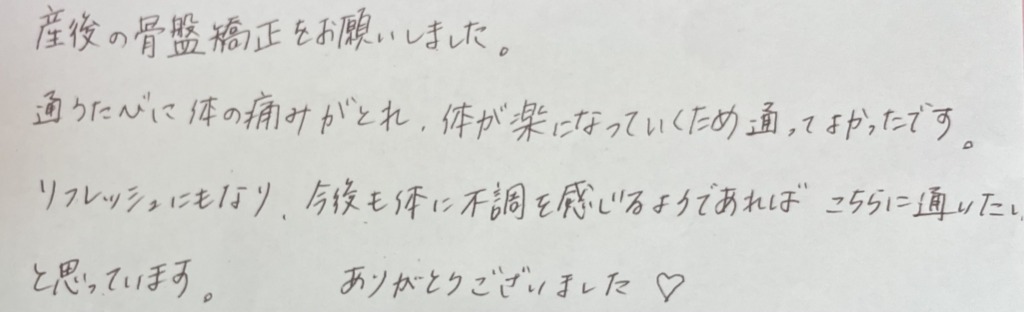 産後の骨盤矯正をお願いしました。
通うたびに体の痛みがとれ、体が楽になっていくため通ってよかったです。
リフレッシュにもなり、今後も体に不調を感じるようであれば こちらに通いたい
と思っています。 ありがとうございました ♡